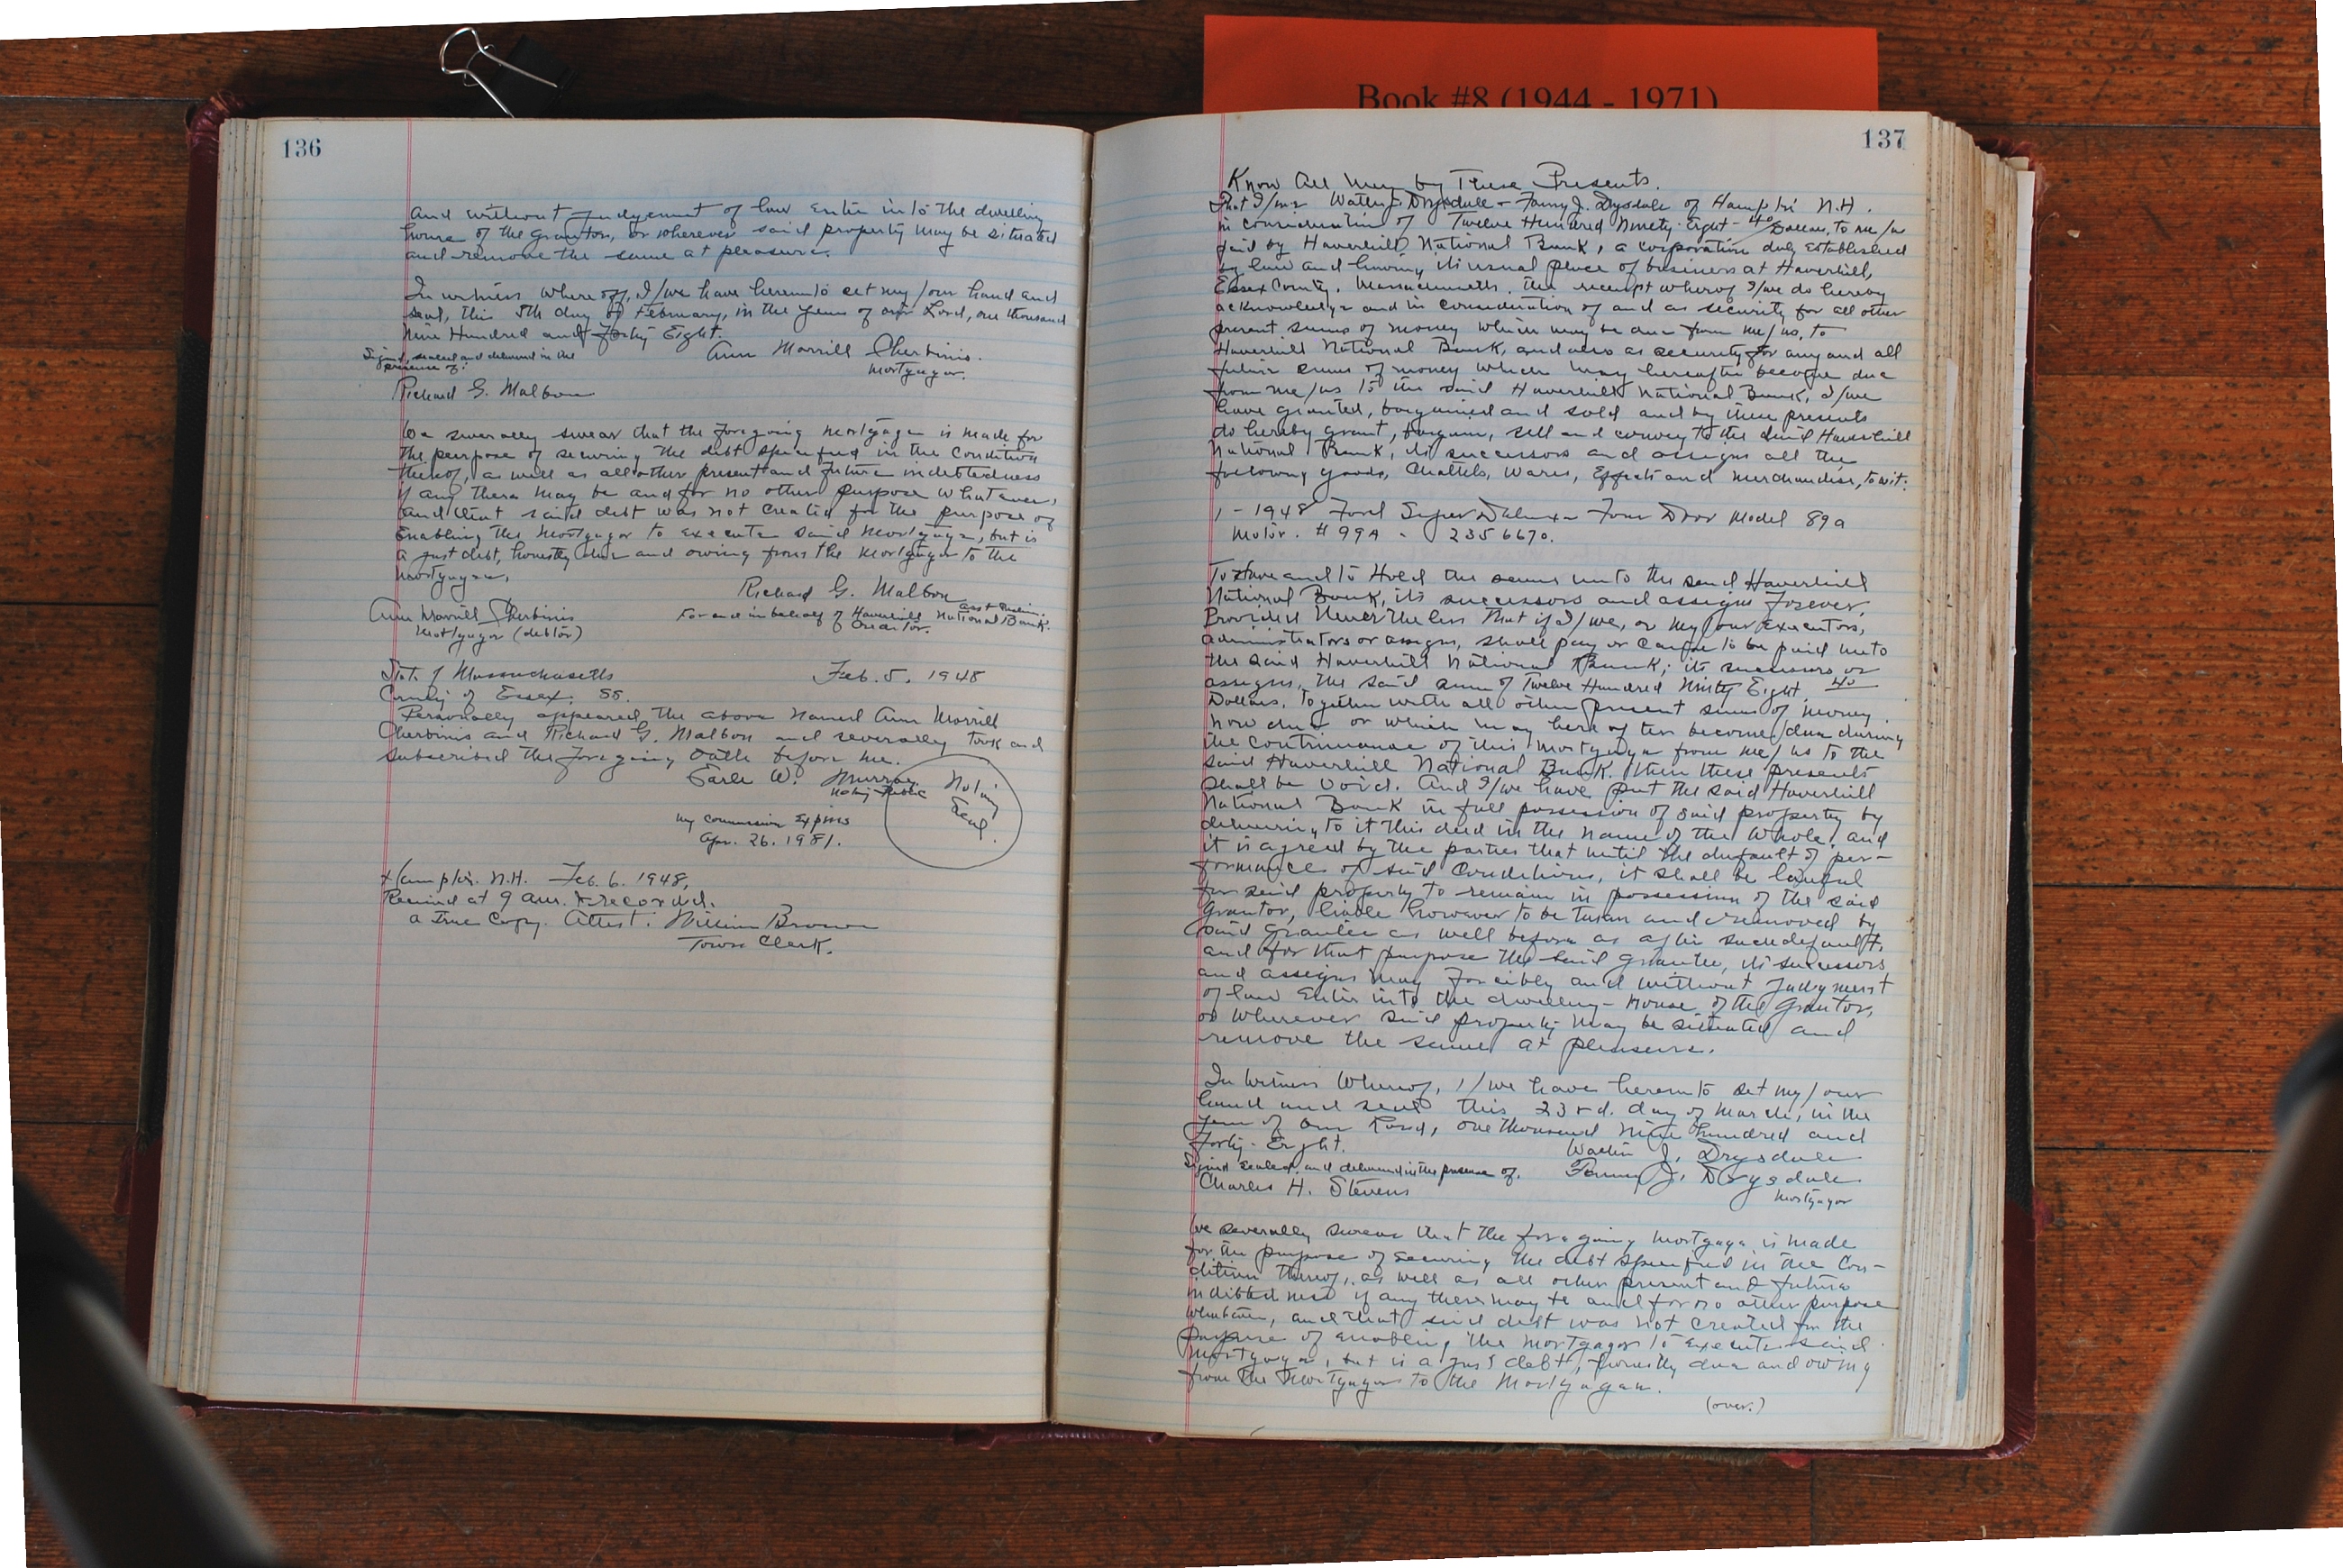 Book #8 (1944 - 1971)
136
and without judgement of law enter into the dwelling
house of the grantor, or wherever said property may be situated
and remove the same at pleasure.
In witness whereof, I/we have hereunto set my/our hand and
seal, this 5th day of February, in the year of our Lord, one thousand
nine Hundred and Forty Eight.
Signed, sealed and delivered in the
presence of:
Ann Morrill Cherbinis.
Mortgagor.
Richard G. Malbon
We severally swear that the foregoing mortgage is made for
the purpose of securing the debt specified in the condition
thereof, as well as all other present and future indebtedness
if any there may be and for no other purpose whatever,
and that said debt was not created for the purpose of
enabling the mortgagor to execute said mortgage, but is
a just debt, honestly due and owing from the mortgagor to the
mortgagee.
Richard G. Malbon
For and in behalf of Haverhill National Bank.
Creditor.
Ann Morrill Cherbinis
Mortgagor (debtor)
State of Massachusetts Feb. 5, 1948
County of Essex, SS.
Personally appeared the above named Ann Morrill
Cherbinis and Richard G. Malbon and severally took and
subscribed the foregoing oath before me.
Earle W. Murray
Notary Public
Notary
Seal.
my commission Expires
Apr. 26. 1951.
Hampton. N.H. Feb. 6. 1948,
Received at 9 am. & recorded.
a True Copy. Attest: William Brown
Town Clerk.
137
Know All Men by These Presents.
That I/we Walter J. Drysdale + Fanny J. Drysdale of Hampton N.H.
in consideration of Twelve Hundred Ninety-Eight - 40/ Dollars, to me/us
paid by Haverhill National Bank, a corporation duly established
by law and having its usual place of business at Haverhill,
Essex County, Massachusetts, the receipt whereof I/we do hereby
acknowledge and in consideration of and as security for all other
present sums of money which may be due from me/us, to
Haverhill National Bank, and also as security for any and all
future sums of money which may hereafter become due
from me/us to the said Haverhill National Bank, I/we
have granted, bargained and sold and by these presents
do hereby grant, bargain, sell and convey to the said Haverhill
National Bank, its successors and assigns all the
following goods, Chattels, Wares, Effects and merchandise, to wit:
1 - 1948 Ford Super Deluxe Four Door Model 89a
Motor. # 99A - 2356670.
To Have and to Hold the same unto the said Haverhill
National Bank, its successors and assigns Forever.
Provided Nevertheless That if I/we, or my/our Executors,
administrators or assigns, shall pay or cause to be paid unto
the said Haverhill National Bank, its successors or
assigns, the said sum of Twelve Hundred Ninty Eight 40
Dollars, Together with all other present sums of money
now due or which may here after become due during
the continuance of this mortgage from me/us to the
said Haverhill National Bank. then these presents
shall be void. And I/we have put the said Haverhill
National Bank in full possession of said property by
delivering to it this deed in the name of the Whole, and
it is agreed by the parties that until the default of per-
formance of said Conditions, it shall be lawful
for said property to remain in possession of the said
Grantor, liable however to be taken and removed by
said grantee as well before as after such default,
and for that purpose the said grantee, its successors
and assigns may forcibly and without Judgment
of law Enter into the dwelling-house of the grantor,
or wherever said property may be situated and
remove the same at pleasure.
In Witness Whereof, I/we have hereunto set my/our
hand and seal this 23rd. day of March, in the
year of our Lord, one thousand nine hundred and
Forty-Eight.
Walter J. Drysdale
Signed sealed and delivered in the presence of. Fanny J. Drysdale
Charles H. Stevens
Mortgagor
We severally swear that the foregoing mortgage is made
for the purpose of securing the debt specified in the Con-
dition thereof, as well as all other present and future
indebtedness if any there may be and for no other purpose
whatever, and that said debt was not created for the
purpose of enabling the mortgagor to execute said
mortgage, but is a just debt, honestly due and owing
from the mortgagor to the mortgagee.
(over.)